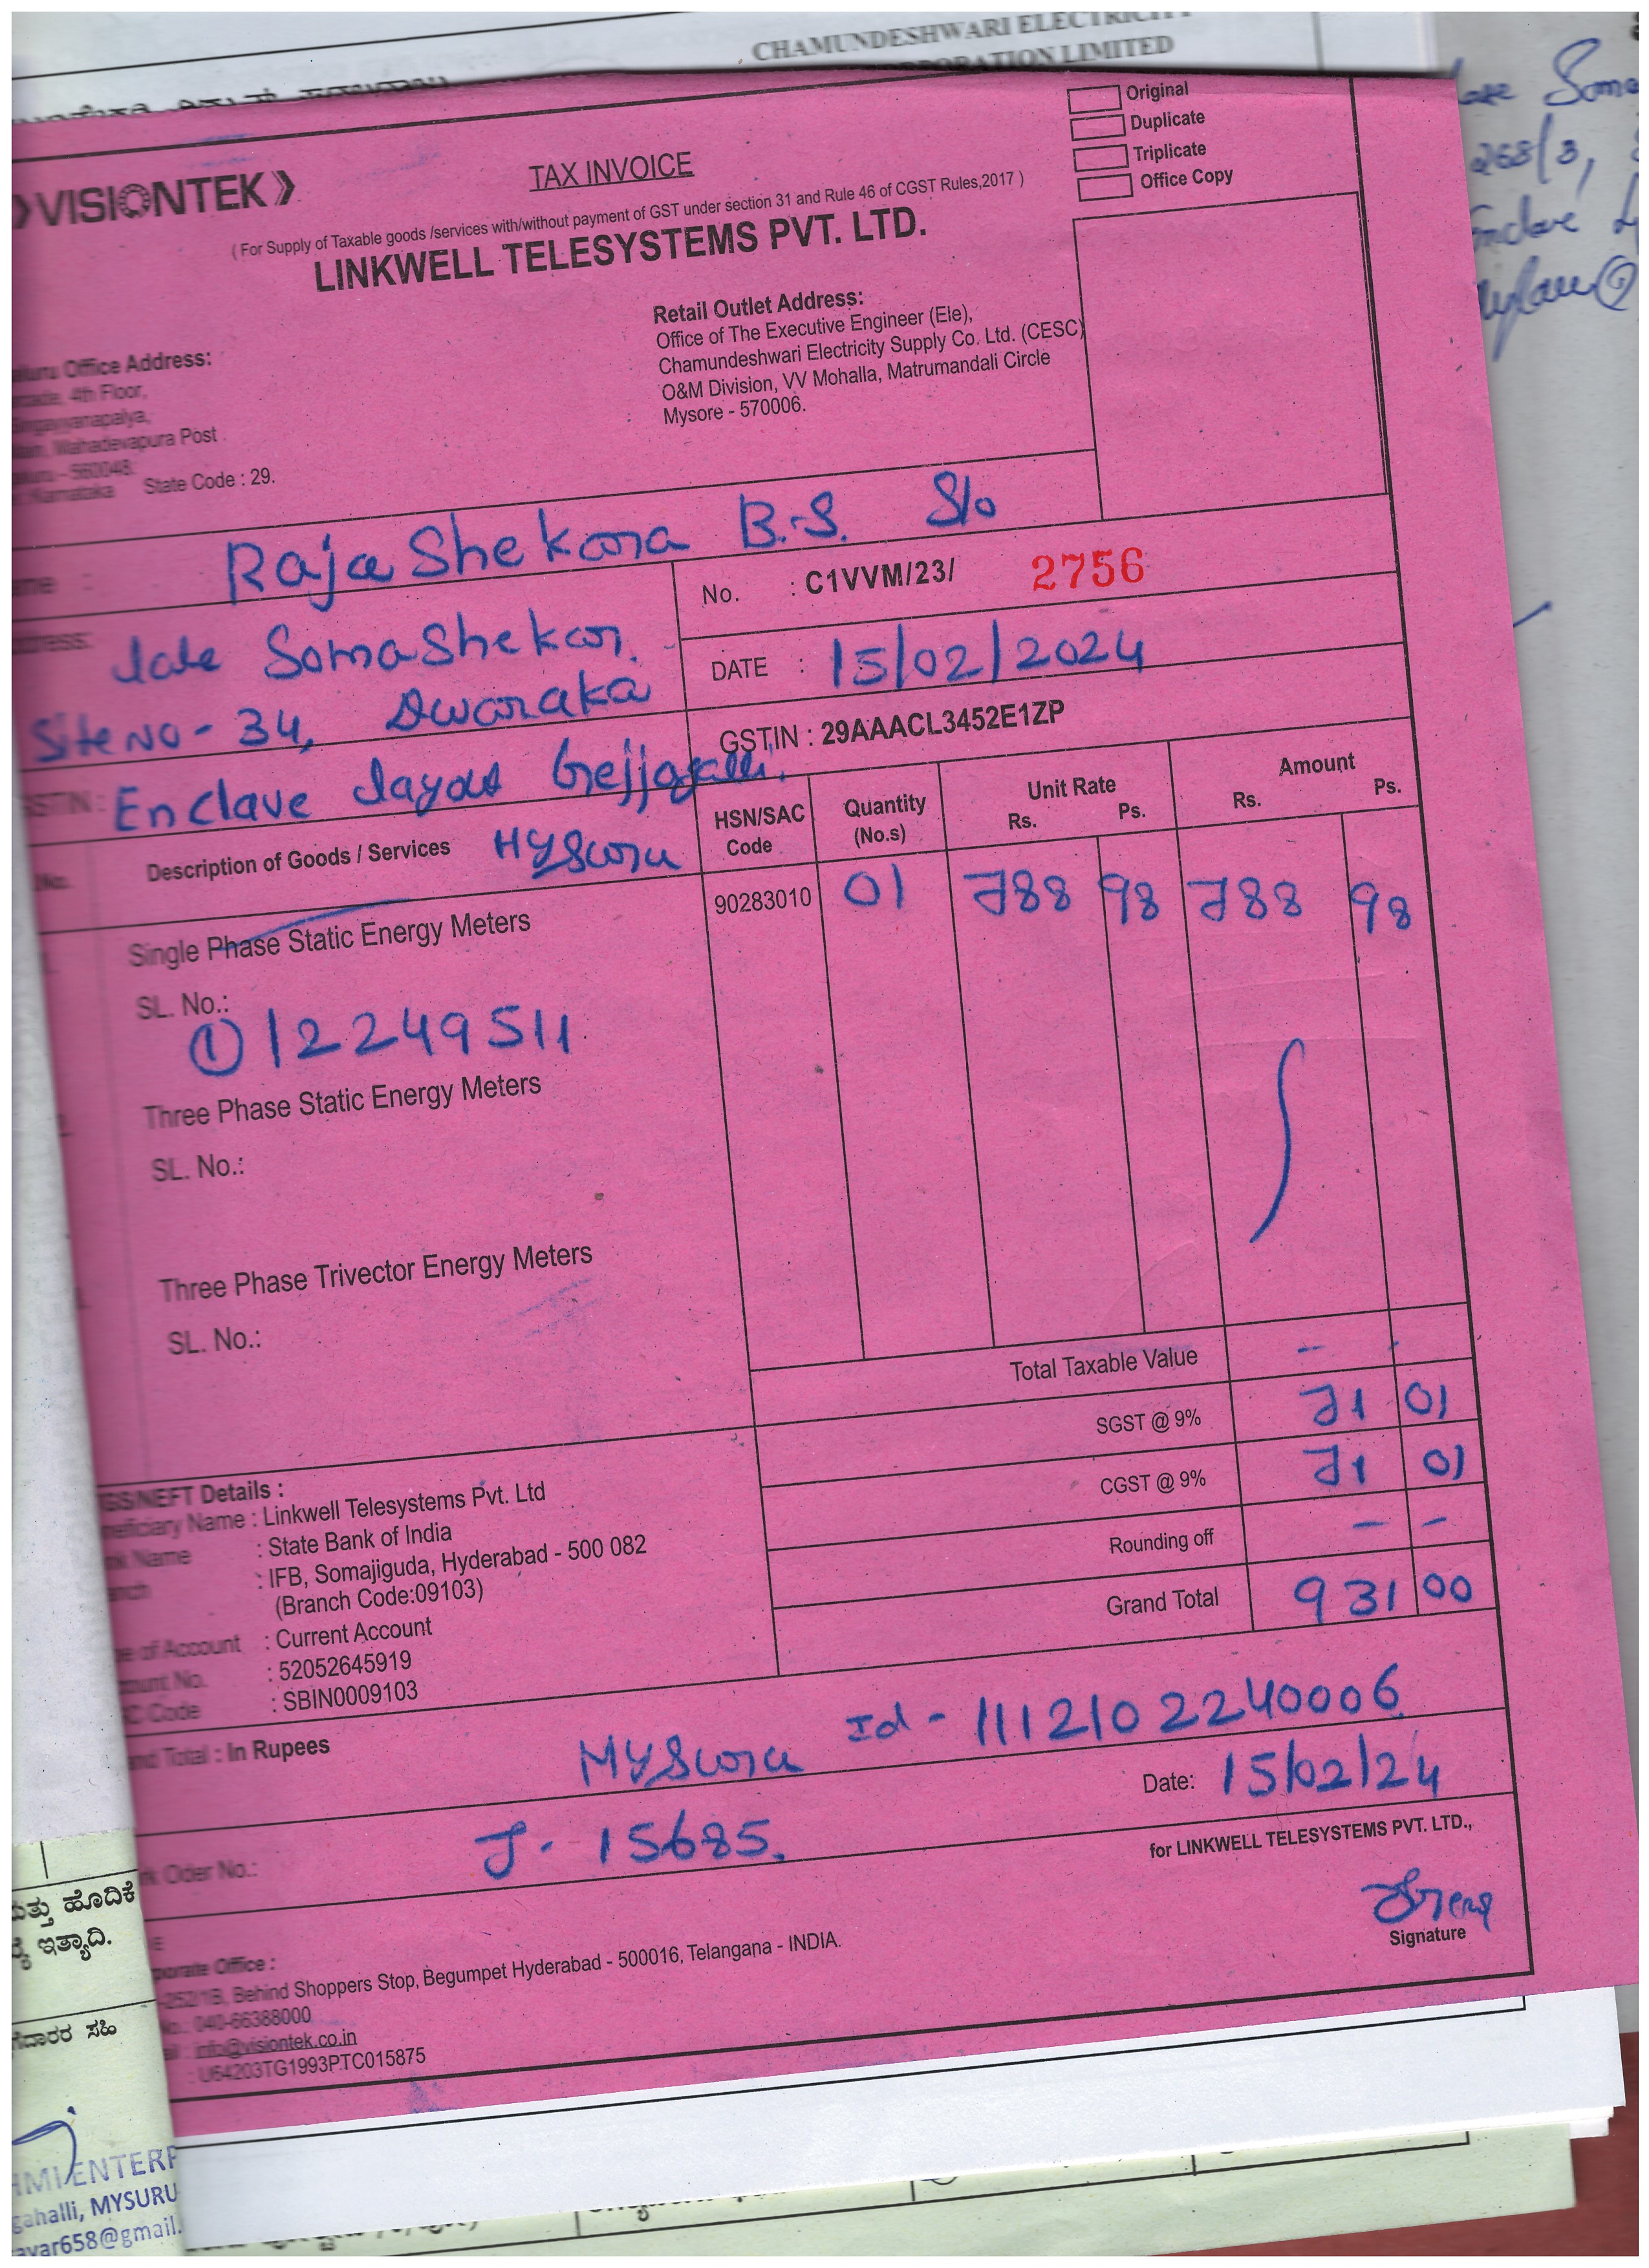 CHAMUNDESHWARI ELECTRICITY
CORPORATION LIMITED
Original
Duplicate
Triplicate
Office Copy
VISIONTEK
TAX INVOICE
( For Supply of Taxable goods /services with/without payment of GST under section 31 and Rule 46 of CGST Rules,2017 )
LINKWELL TELESYSTEMS PVT. LTD.
Office Address:
4th Floor,
Mahadevapura Post
- 560048.
Karnataka State Code : 29.
Retail Outlet Address:
Office of The Executive Engineer (Ele),
Chamundeshwari Electricity Supply Co. Ltd. (CESC)
O&M Division, VV Mohalla, Matrumandali Circle
Mysore - 570006.
: Raja Shekara B.S. S/o
late SomaShekar.
Site NO - 34, Dwaraka
Enclave layout
Mysuru
No. : C1VVM/23/ 2756
DATE : 15/02/2024
GSTIN : 29AAACL3452E1ZP
Description of Goods / Services HSN/SAC Code Quantity (No.s) Unit Rate Rs. Ps. Amount Rs. Ps.
Single Phase Static Energy Meters 90283010 01 788 98 788 98
SL. No.:
① 12249511
Three Phase Static Energy Meters
SL. No.:
Three Phase Trivector Energy Meters
SL. No.:
Total Taxable Value - -
SGST @ 9% 71 01
CGST @ 9% 71 01
Rounding off - -
Grand Total 931 00
NEFT Details :
Name : Linkwell Telesystems Pvt. Ltd
Name : State Bank of India
: IFB, Somajiguda, Hyderabad - 500 082
(Branch Code:09103)
of Account : Current Account
No. : 52052645919
Code : SBIN0009103
Total : In Rupees
Mysuru Id - 11121022240006
J - 15685.
Date: 15/02/24
Oder No.:
for LINKWELL TELESYSTEMS PVT. LTD.,
Signature
Office :
Behind Shoppers Stop, Begumpet Hyderabad - 500016, Telangana - INDIA.
040-66388000
info@visiontek.co.in
: U64203TG1993PTC015875
ಮತ್ತು ಹೊದಿಕೆ
ಇತ್ಯಾದಿ.
ಸಹಿ
MYSURU